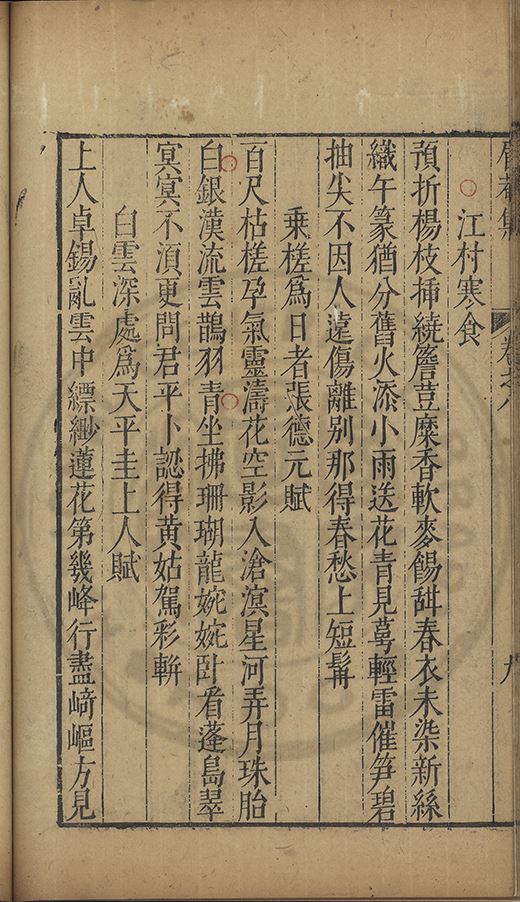 卷之八
九
江村寒食
預折楊枝揷繞簷荳糜香軟麥餳甜春衣未染新絲
織午篆猶分舊火添小雨送花青見萼輕雷催笋碧
抽尖不因人遠傷離别那得春愁上短髯
乗槎爲日者張德元賦
百尺枯槎孕氣靈濤花空影入滄溟星河弄月珠胎
白銀漢流雲鵲羽青坐拂珊瑚龍婉婉卧看蓬島翠
冥冥不湏更問君平卜認得黄姑駕彩軿
白雲深處爲天平圭上人賦
上人卓錫亂雲中縹緲蓮花第幾峰行盡﨑嶇方見